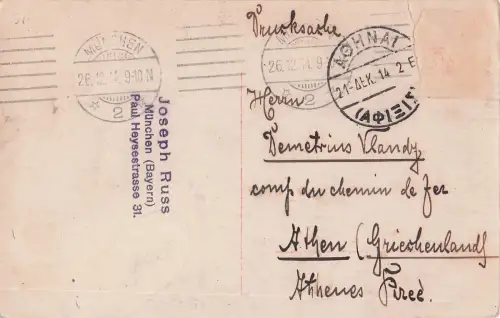 Drucksache
MÜNCHEN
26.12.14. 9-10 N
2
26.12.14. 9
2
ΑΘΗΝΑΙ
21-ΔΕΚ. 14 2-Ε
(ΑΦΙΞΙΣ
Joseph Russ
München (Bayern)
Paul Heysestrasse 31.
Herrn
Demetrius Vlandy
comp du chemin de fer
Athen (Griechenland)
Athenes Pireé.